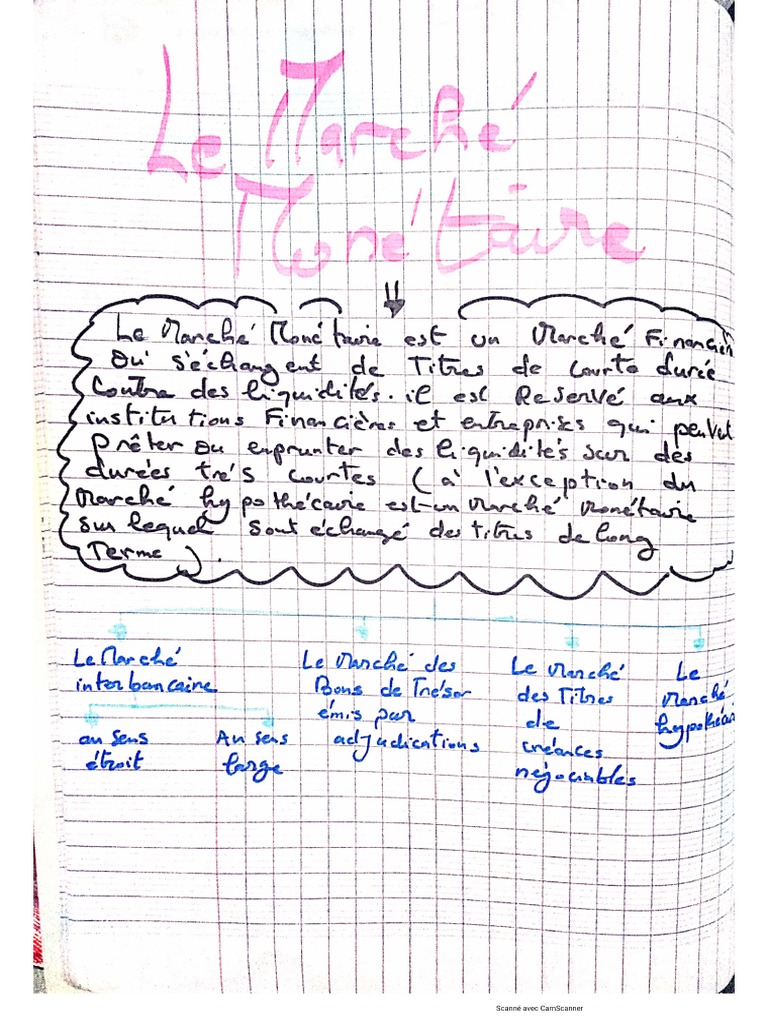 Le Marché
Monétaire
Le Marché Monétaire est un Marché Financier
Où s'échangent de Titres de courte durée
Contre des liquidités. il est Reservé aux
institutions Financières et entreprises qui peuvent
prêter ou emprunter des liquidités sur des
durées très courtes (à l'exception du
Marché hypothécaire est un Marché Monétaire
sur lequel sont échangé des titres de long
Terme).
Le Marché
interbancaire
au sens
étroit
Au sens
large
Le Marché des
Bons de Trésor
émis par
adjudications
Le Marché
des Titres
de
créances
négociables
Le
Marché
hypothécaire
Scanné avec CamScanner